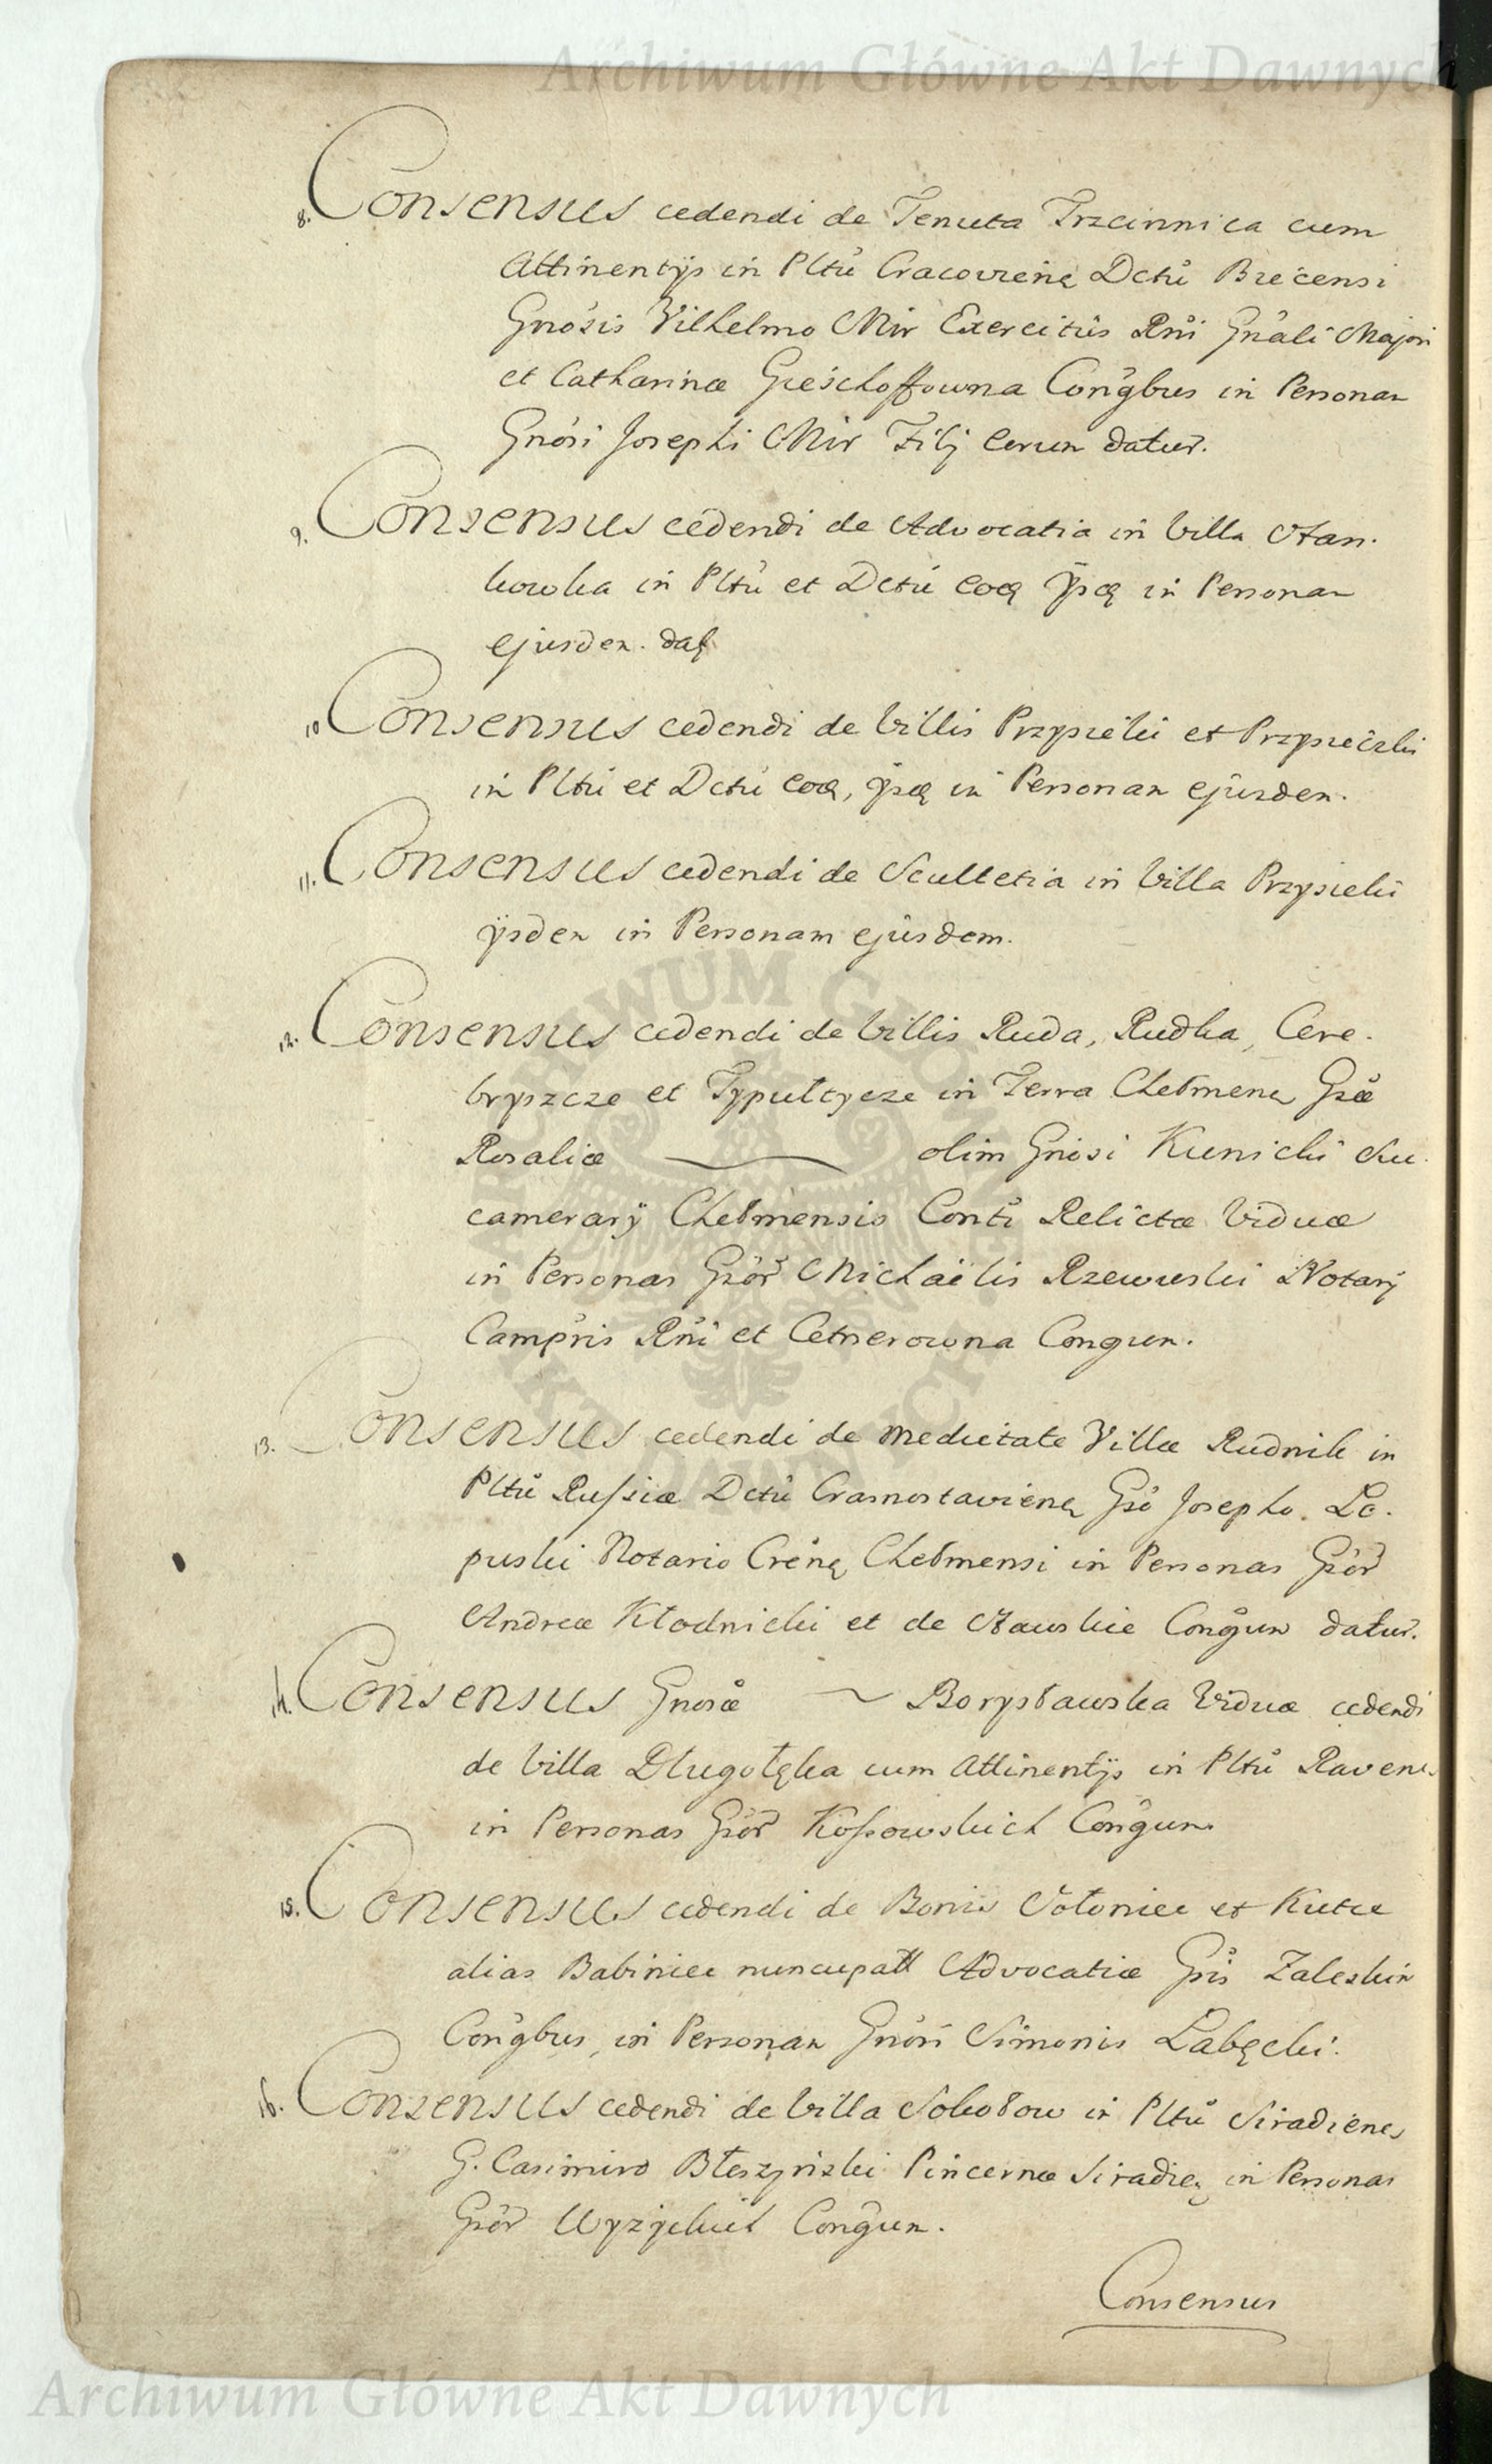 Archiwum Główne Akt Dawnych
8. Consensus cedendi de Tenuta Trzcinnica cum
Attinentijs in Pltu Cracoviene Dctu Biecensi
Gnosis Vilhelmo Mir Exercitus Rni Gnali Majori
et Catharinæ Greschoffowna Congbus in Personam
Gnosi Josephi Mir Filij Eorum datur.
9. Consensus cedendi de Advocatia in Villa
in Pltu et Dctu eoq ijsq in Personam
ejusdem. datq
10 Consensus cedendi de Villis Przysieki et Przysieczki
in Pltu et Dctu eoq, ijsq in Personam ejusdem.
11. Consensus cedendi de Scultetia in Villa Przysieki
ijsdem in Personam ejusdem.
12. Consensus cedendi de Villis Ruda, Rudka, Cere-
bryszcze et Typultycze in Terra Chełmene Gsæ
Rosaliæ olim Gnosi Kunicki Suc-
camerarij Chełmensis Conti Relictæ Viduæ
in Personas Gsor Michaëlis Rzewuski Notarij
Campris Rni et Cetnerowna Congum.
13. Consensus cedendi de medietate Villæ Rudnik in
Pltu Russiæ Dctu Crasnostaviene Gso Josepho. Lo-
puski Notario Crene Chełmensi in Personas Gsor
Andreæ Kłodnicki et de Congum datur.
14. Consensus Gnosæ Borysławska Viduæ cedendi
de Villa Długołęka cum Attinentijs in Pltu Ravene
in Personas Gsor Kossowskich Congum
15. Consensus cedendi de Bonis Sołoniec et Kutce
alias Babiniec nuncupatt Advocatiæ Gsis Zaleskim
Congbus, in Personam Gnosi Simonis Łabęcki.
16. Consensus cedendi de Villa Sokołow in Pltu Siradiene
G. Casimiro Błeszynski Pincernæ Siradie in Personas
Gsor Wyzyckich Congum.
Consensus
Archiwum Główne Akt Dawnych